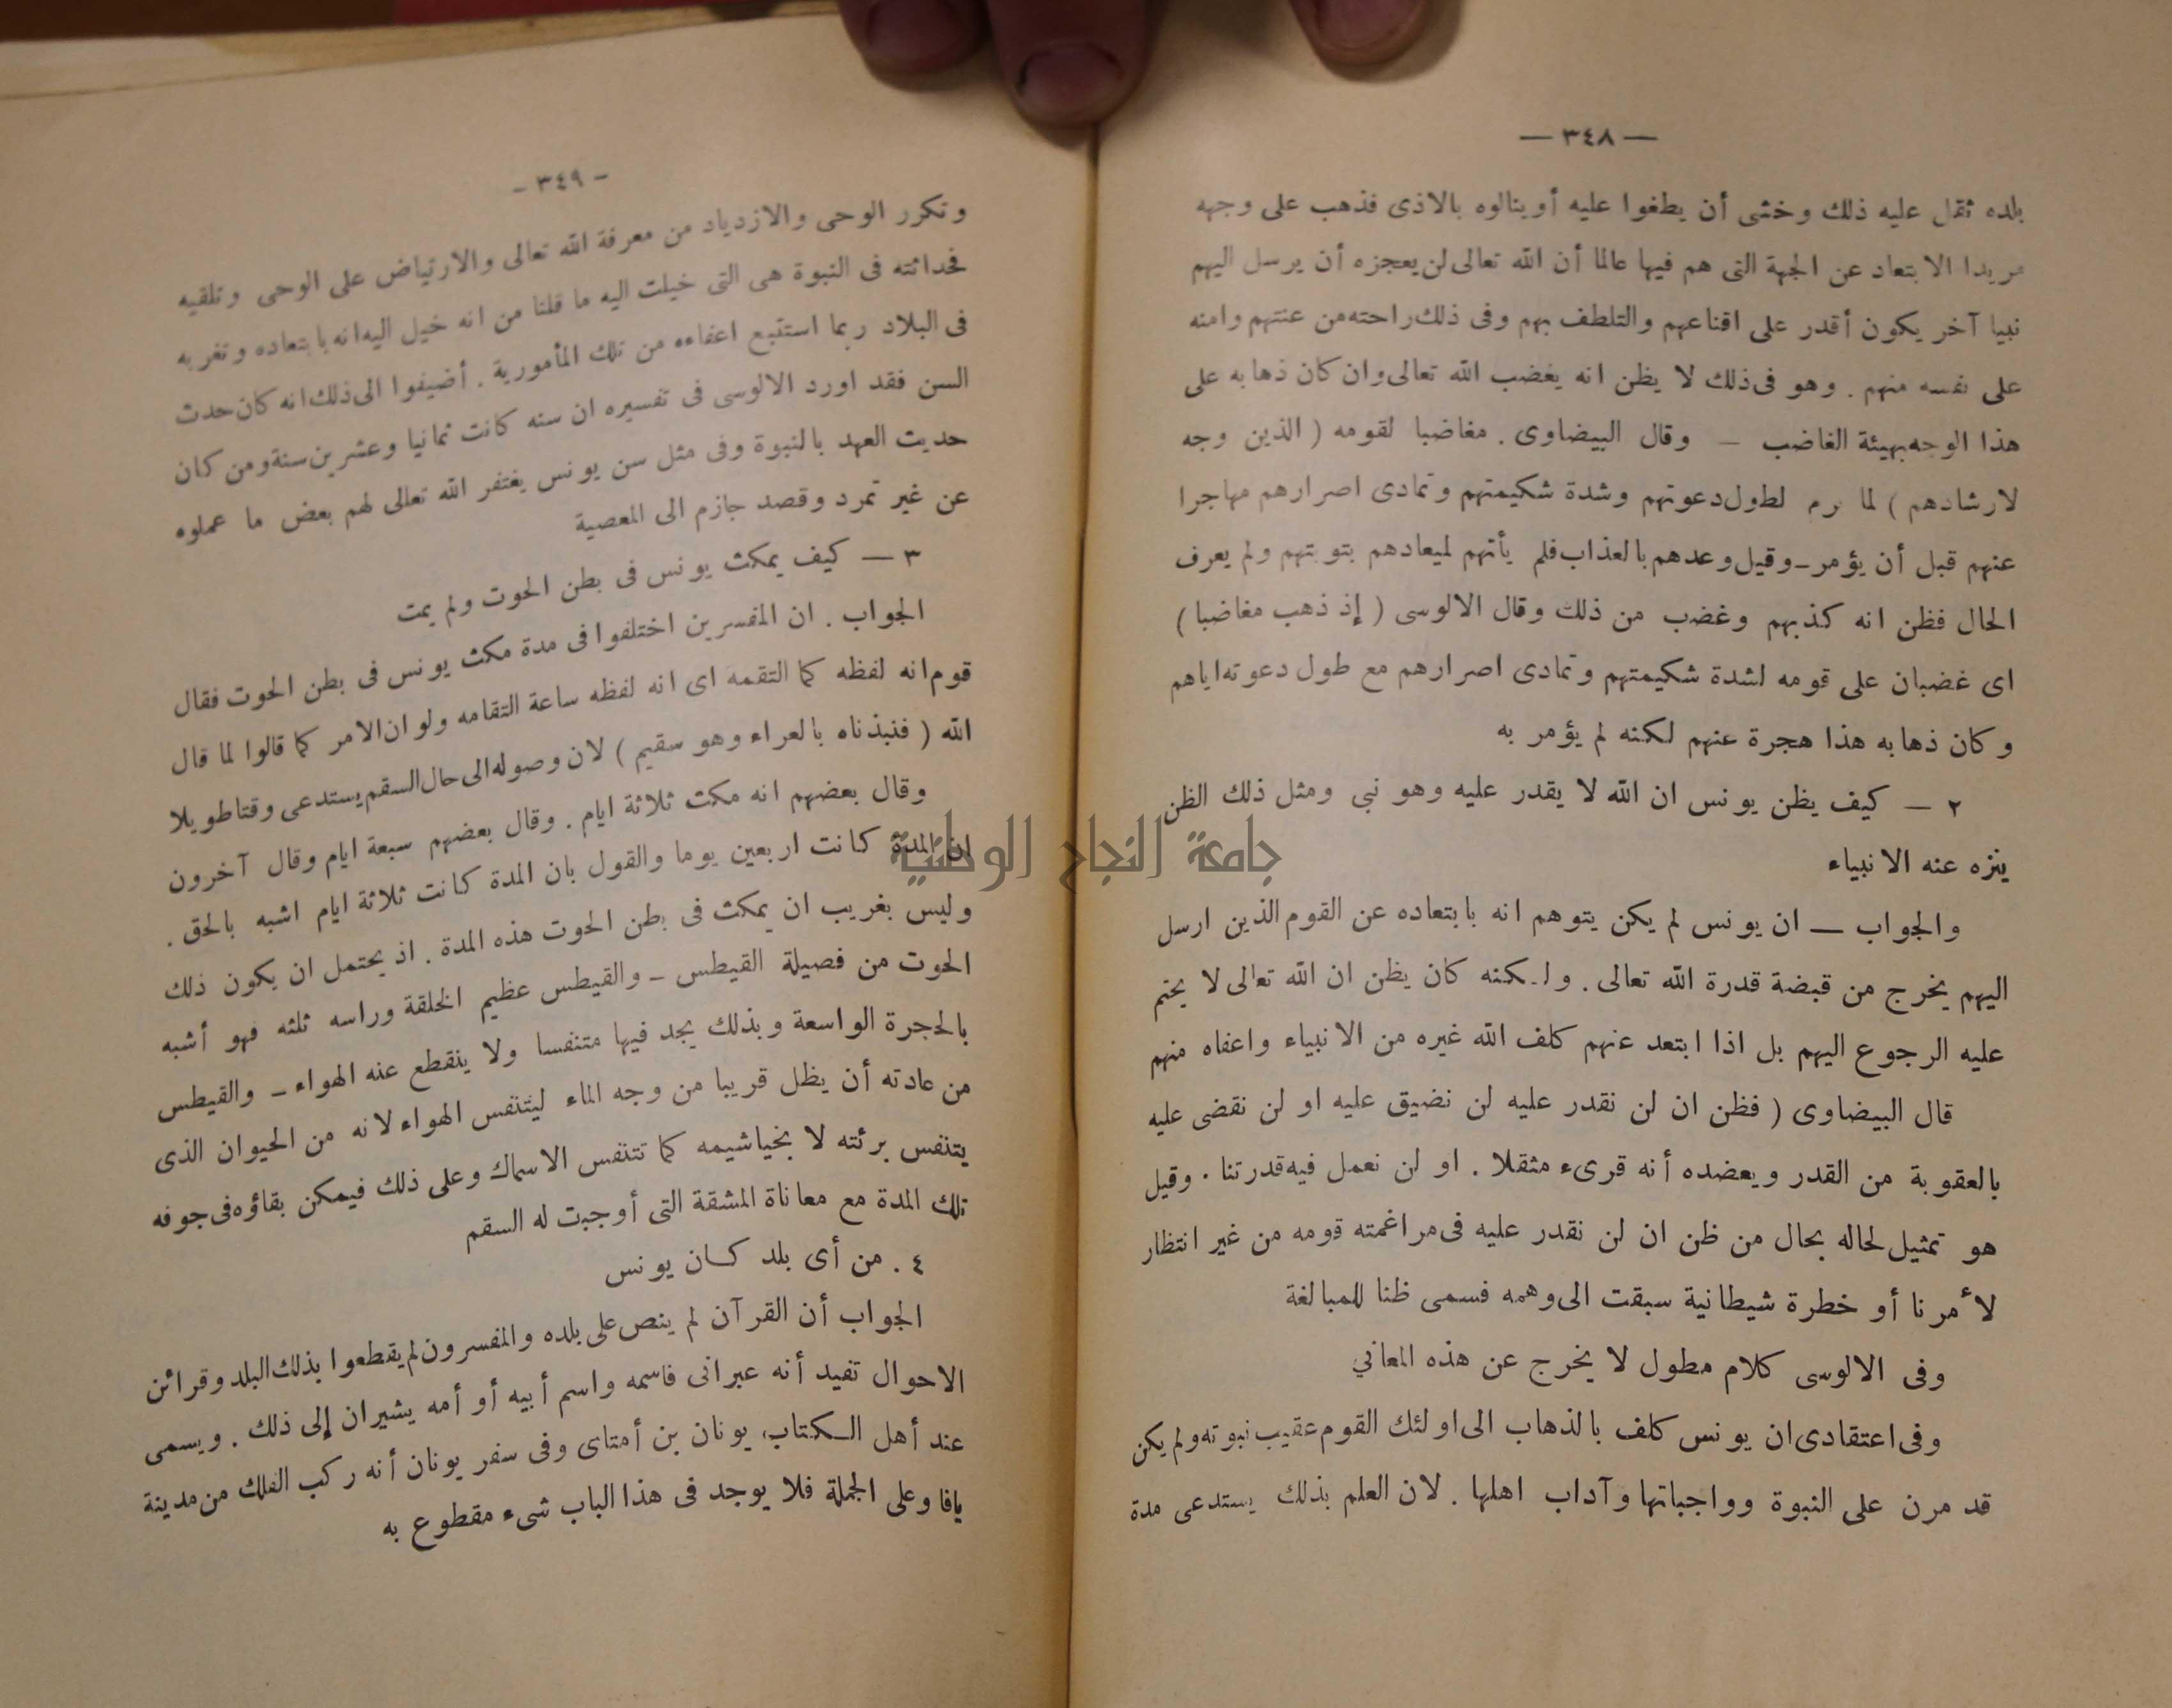 — ٣٤٨ —
بلده ثقل عليه ذلك وخشى أن يطغوا عليه أو ينالوه بالاذى فذهب على وجهه
مريدا الابتعاد عن الجهة التى هم فيها عالما أن الله تعالى لن يعجزه أن يرسل اليهم
نبيا آخر يكون أقدر على اقناعهم والتلطف بهم وفى ذلك راحته من عنتهم وامنه
على نفسه منهم . وهو فى ذلك لا يظن انه يغضب الله تعالى وان كان ذهابه على
هذا الوجه بهيئة الغاضب — وقال البيضاوى . مغاضبا لقومه ( الذين وجه
لارشادهم ) لما برم لطول دعوتهم وشدة شكيمتهم وتمادى اصرارهم مهاجرا
عنهم قبل أن يؤمر ـ وقيل وعدهم بالعذاب فلم يأتهم لميعادهم بتوبتهم ولم يعرف
الحال فظن انه كذبهم وغضب من ذلك وقال الالوسى ( إذ ذهب مغاضبا )
اى غضبان على قومه لشدة شكيمتهم وتمادى اصرارهم مع طول دعوته اياهم
وكان ذهابه هذا هجرة عنهم لكنه لم يؤمر به
٢ — كيف يظن يونس ان الله لا يقدر عليه وهو نبى ومثل ذلك الظن
ينزه عنه الانبياء
والجواب — ان يونس لم يكن يتوهم انه بابتعاده عن القوم الذين ارسل
اليهم يخرج من قبضة قدرة الله تعالى . ولكنه كان يظن ان الله تعالى لا يحتم
عليه الرجوع اليهم بل اذا ابتعد عنهم كلف الله غيره من الانبياء واعفاه منهم
قال البيضاوى ( فظن ان لن نقدر عليه لن نضيق عليه او لن نقضى عليه
بالعقوبة من القدر ويعضده أنه قرىء مثقلا . او لن نعمل فيه قدرتنا . وقيل
هو تمثيل لحاله بحال من ظن ان لن نقدر عليه فى مراغمته قومه من غير انتظار
لأمرنا أو خطرة شيطانية سبقت الى وهمه فسمى ظنا للمبالغة
وفى الالوسى كلام مطول لا يخرج عن هذه المعاني
وفى اعتقادى ان يونس كلف بالذهاب الى اولئك القوم عقيب نبوته ولم يكن
قد مرن على النبوة وواجباتها وآداب اهلها . لان العلم بذلك يستدعى مدة
- ٣٤٩ -
وتكرر الوحى والازدياد من معرفة الله تعالى والارتياض على الوحى وتلقيه
فحداثته فى النبوة هى التى خيلت اليه ما قلنا من انه خيل اليه انه بابتعاده وتغربه
فى البلاد ربما استتبع اعفاءه من تلك المأمورية . أضيفوا الى ذلك انه كان حدث
السن فقد اورد الالوسى فى تفسيره ان سنه كانت ثمانيا وعشرين سنة ومن كان
حديث العهد بالنبوة وفى مثل سن يونس يغتفر الله تعالى لهم بعض ما عملوه
عن غير تمرد وقصد جازم الى المعصية
٣ — كيف يمكث يونس فى بطن الحوت ولم يمت
الجواب . ان المفسرين اختلفوا فى مدة مكث يونس فى بطن الحوت فقال
قوم انه لفظه كما التقمه اى انه لفظه ساعة التقامه ولو ان الامر كما قالوا لما قال
الله ( فنبذناه بالعراء وهو سقيم ) لان وصوله الى حال السقم يستدعى وقتا طويلا
وقال بعضهم انه مكث ثلاثة ايام . وقال بعضهم سبعة ايام وقال آخرون
ان المدة كانت اربعين يوما والقول بان المدة كانت ثلاثة ايام اشبه بالحق .
وليس بغريب ان يمكث فى بطن الحوت هذه المدة . اذ يحتمل ان يكون ذلك
الحوت من فصيلة القيطس ـ والقيطس عظيم الخلقة وراسه ثلثه فهو أشبه
بالحجرة الواسعة وبذلك يجد فيها متنفسا ولا ينقطع عنه الهواء ـ والقيطس
من عادته أن يظل قريبا من وجه الماء ليتنفس الهواء لانه من الحيوان الذى
يتنفس برئته لا بخياشيمه كما تتنفس الاسماك وعلى ذلك فيمكن بقاؤه فى جوفه
تلك المدة مع معاناة المشقة التى أوجبت له السقم
٤ . من أى بلد كان يونس
الجواب أن القرآن لم ينص على بلده والمفسرون لم يقطعوا بذلك البلد وقرائن
الاحوال تفيد أنه عبرانى فاسمه واسم أبيه أو أمه يشيران إلى ذلك . ويسمى
عند أهل الكتاب، يونان بن أمتاى وفى سفر يونان أنه ركب الفلك من مدينة
يافا وعلى الجملة فلا يوجد فى هذا الباب شىء مقطوع به
جامعة النجاح الوطنية